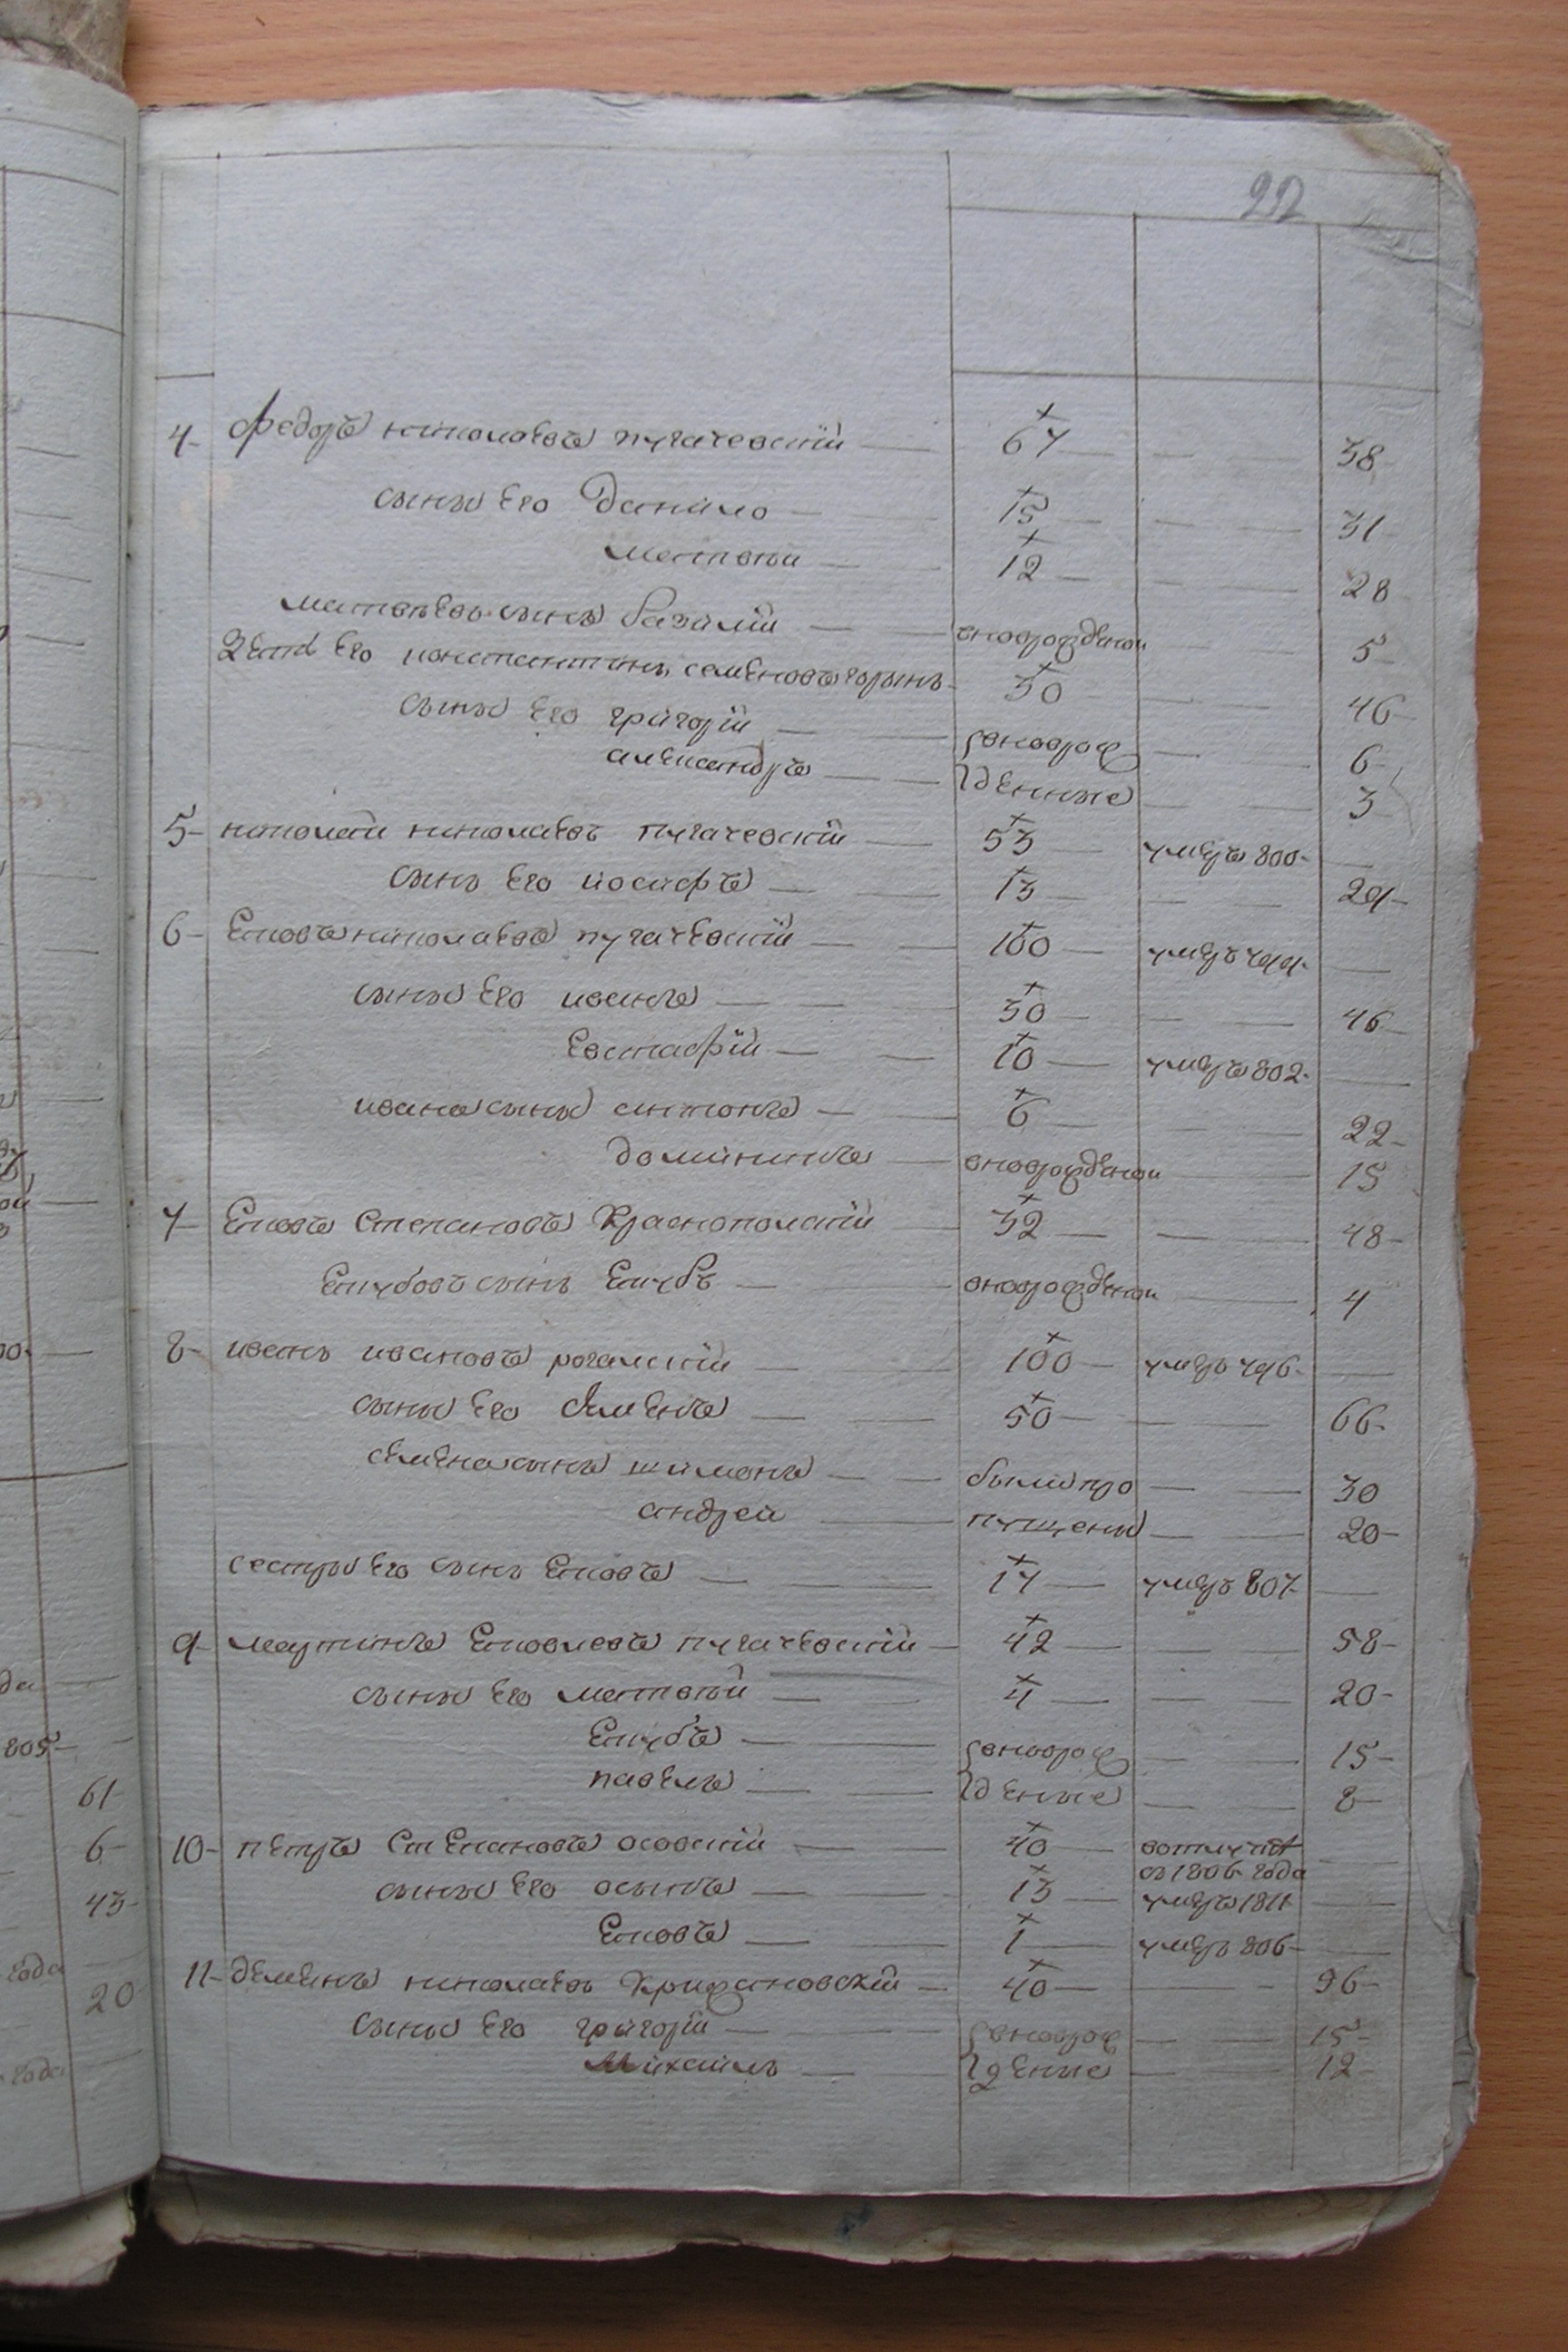 22
4- Федоръ николаевъ пугачевскій — 67 — — 38
сыны его Данило — 15 — — 31
матвѣи — 12 — — 28
матвѣевъ сынъ Базилій — новорожденои — 5
Зять его константинъ семеновъ — 30 — 46
сыны его григорій — новорож — 6
александръ — денные — 3
5- николаи николаевъ пугачевскій — 53 — умеръ 800 —
сынъ его иосифъ — 13 — — 29
6- Яковъ николаевъ пугачевскій — 100 — умеръ 799 —
сыны его иванъ — 30 — — 46
Евстафій — 10 — умеръ 802 —
ивана сыны антонъ — 6 — — 22
доминикъ — новорожденои — 15
7- Яковъ Степановъ Краснопольскій — 32 — — 48
сынъ — новорожденои — 4
8- иванъ ивановъ рогальскій — 100 — умеръ 796 —
сыны его Семенъ — 50 — — 66
семена сынъ шимонъ — были про — 30
андреи — пущены — 20
сестры его сынъ Яковъ — 17 — умеръ 807 —
9- мартинъ Яковлевъ пугачевскій — 42 — — 58
сыны его матвѣй — 4 — — 20
Якубъ — новорож — 15
павелъ — денные — 8
10- петръ Степановъ осовскій — 40 — вотлучкѣ
съ 1806 года
сыны его осипъ — 13 — умеръ 1811 —
Яковъ — 1 — умеръ 806 —
11- деменъ николаевъ Крижановскій — 40 — — 96
сыны его григорій — новорож — 15
Михаилъ — денные — 12
805
61
6
43
года
20
года